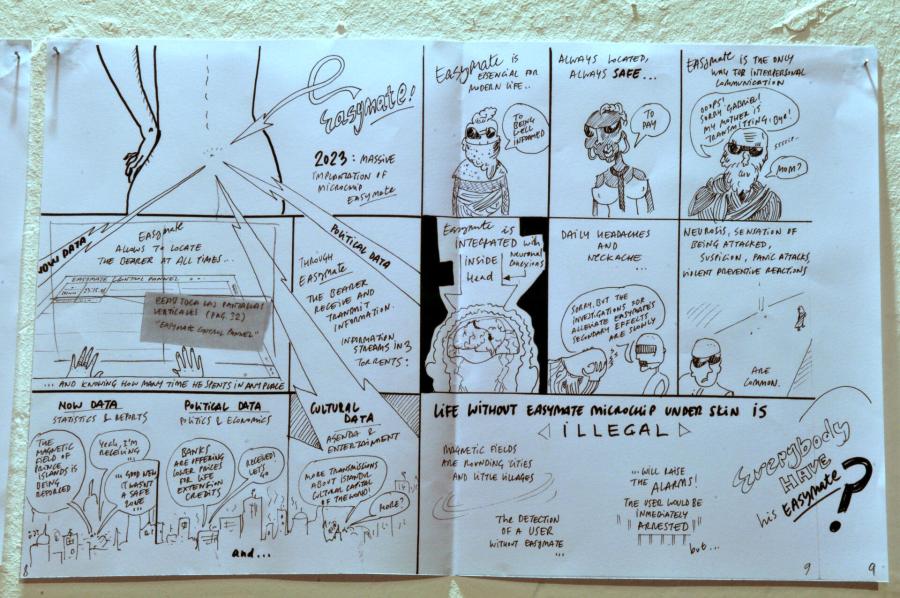 Easymate!
2023: MASSIVE
IMPLANTATION OF
MICROCHIP
EASYMATE
NOW DATA
POLITICAL DATA
Easymate
ALLOWS TO LOCATE
THE BEARER AT ALL TIMES...
EASYMATE CONTROL PANNEL
BEAU TOCA LAS PANTALLAS
VERTICALES (PAG. 32)
"EASYMATE CONTROL PANNEL"
... AND KNOWING HOW MANY TIME HE SPENTS IN ANY PLACE
THROUGH
EASYMATE
THE BEARER
RECEIVE AND
TRANSMIT
INFORMATION.
INFORMATION
STREAMS IN 3
TORRENTS:
NOW DATA
STATISTICS & REPORTS
THE
MAGNETIC
FIELD OF
PRINCE
ISLANDS IS
BEING
REPORTED
Yeah, I'M
RECEIVING
... GOOD NEWS
IT WASN'T
A SAFE
ZONE ...
POLITICAL DATA
POLITICS & ECONOMICS
BANKS
ARE OFFERING
LOWER PRICES
FOR LIFE
EXTENSION
CREDITS
RECEIVED
LETS
GO
CULTURAL
DATA
AGENDA &
ENTERTAINMENT
MORE TRANSMISSIONS
ABOUT ISTANBUL
CULTURAL CAPITAL
OF THE WORLD!
MORE?
and...
8
Easymate IS
ESSENCIAL FOR
MODERN LIFE..
TO
BEING
WELL
INFORMED
ALWAYS LOCATED,
ALWAYS SAFE...
TO
PAY
EASYMATE IS THE ONLY
WAY FOR INTERPERSONAL
COMMUNICATION
OOOPS!
SORRY GABRIEL!
MY MOTHER IS
TRANSMITTING. BYE!
MOM?
Easymate IS
INTEGRATED with
INSIDE
Head
Neuronal
Conexions
DAILY HEADACHES
AND
NECKACHE
...
SORRY, BUT THE
INVESTIGATIONS FOR
ALLEVIATE EASYMATE'S
SECONDARY EFFECTS
ARE SLOWLY
NEUROSIS, SENSATION OF
BEING ATTACKED,
SUSPICION, PANIC ATTACKS,
VIOLENT PREVENTIVE REACTIONS
ARE
COMMON.
LIFE WITHOUT EASYMATE MICROCHIP UNDER SKIN IS
ILLEGAL
MAGNETIC FIELDS
ARE ROUNDING CITIES
AND LITTLE VILLAGES
THE DETECTION
OF A USER
WITHOUT EASYMATE
...
... WILL RAISE
THE ALARMS!
THE USER WOULD BE
INMEDIATELY
ARRESTED
but...
Everybody
HAVE
his EASYMATE?
9
9